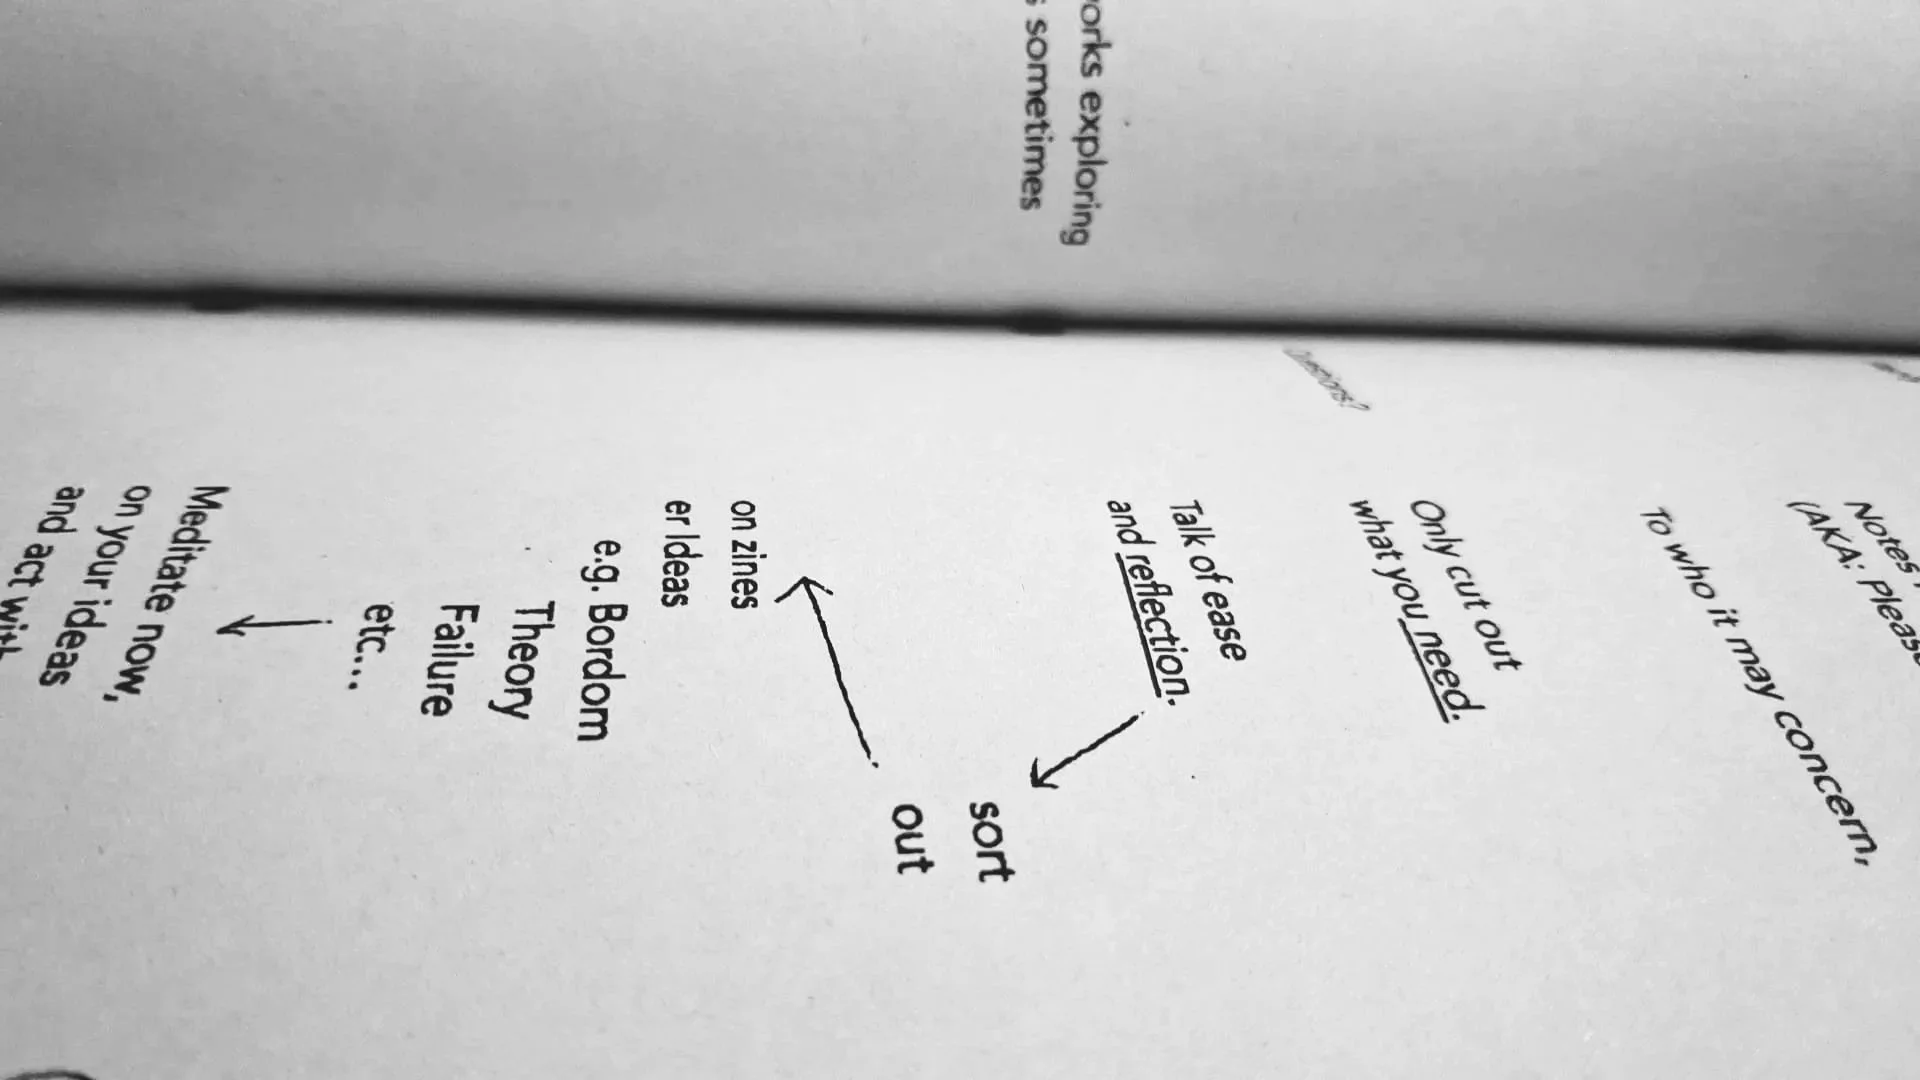 exploring
sometimes
Notes
(AKA: Please
To who it may concern,
Only cut out
what you need.
Talk of ease
and reflection.
sort
out
on zines
er Ideas
e.g. Bordom
Theory
Failure
etc...
Meditate now,
on your ideas
and act with